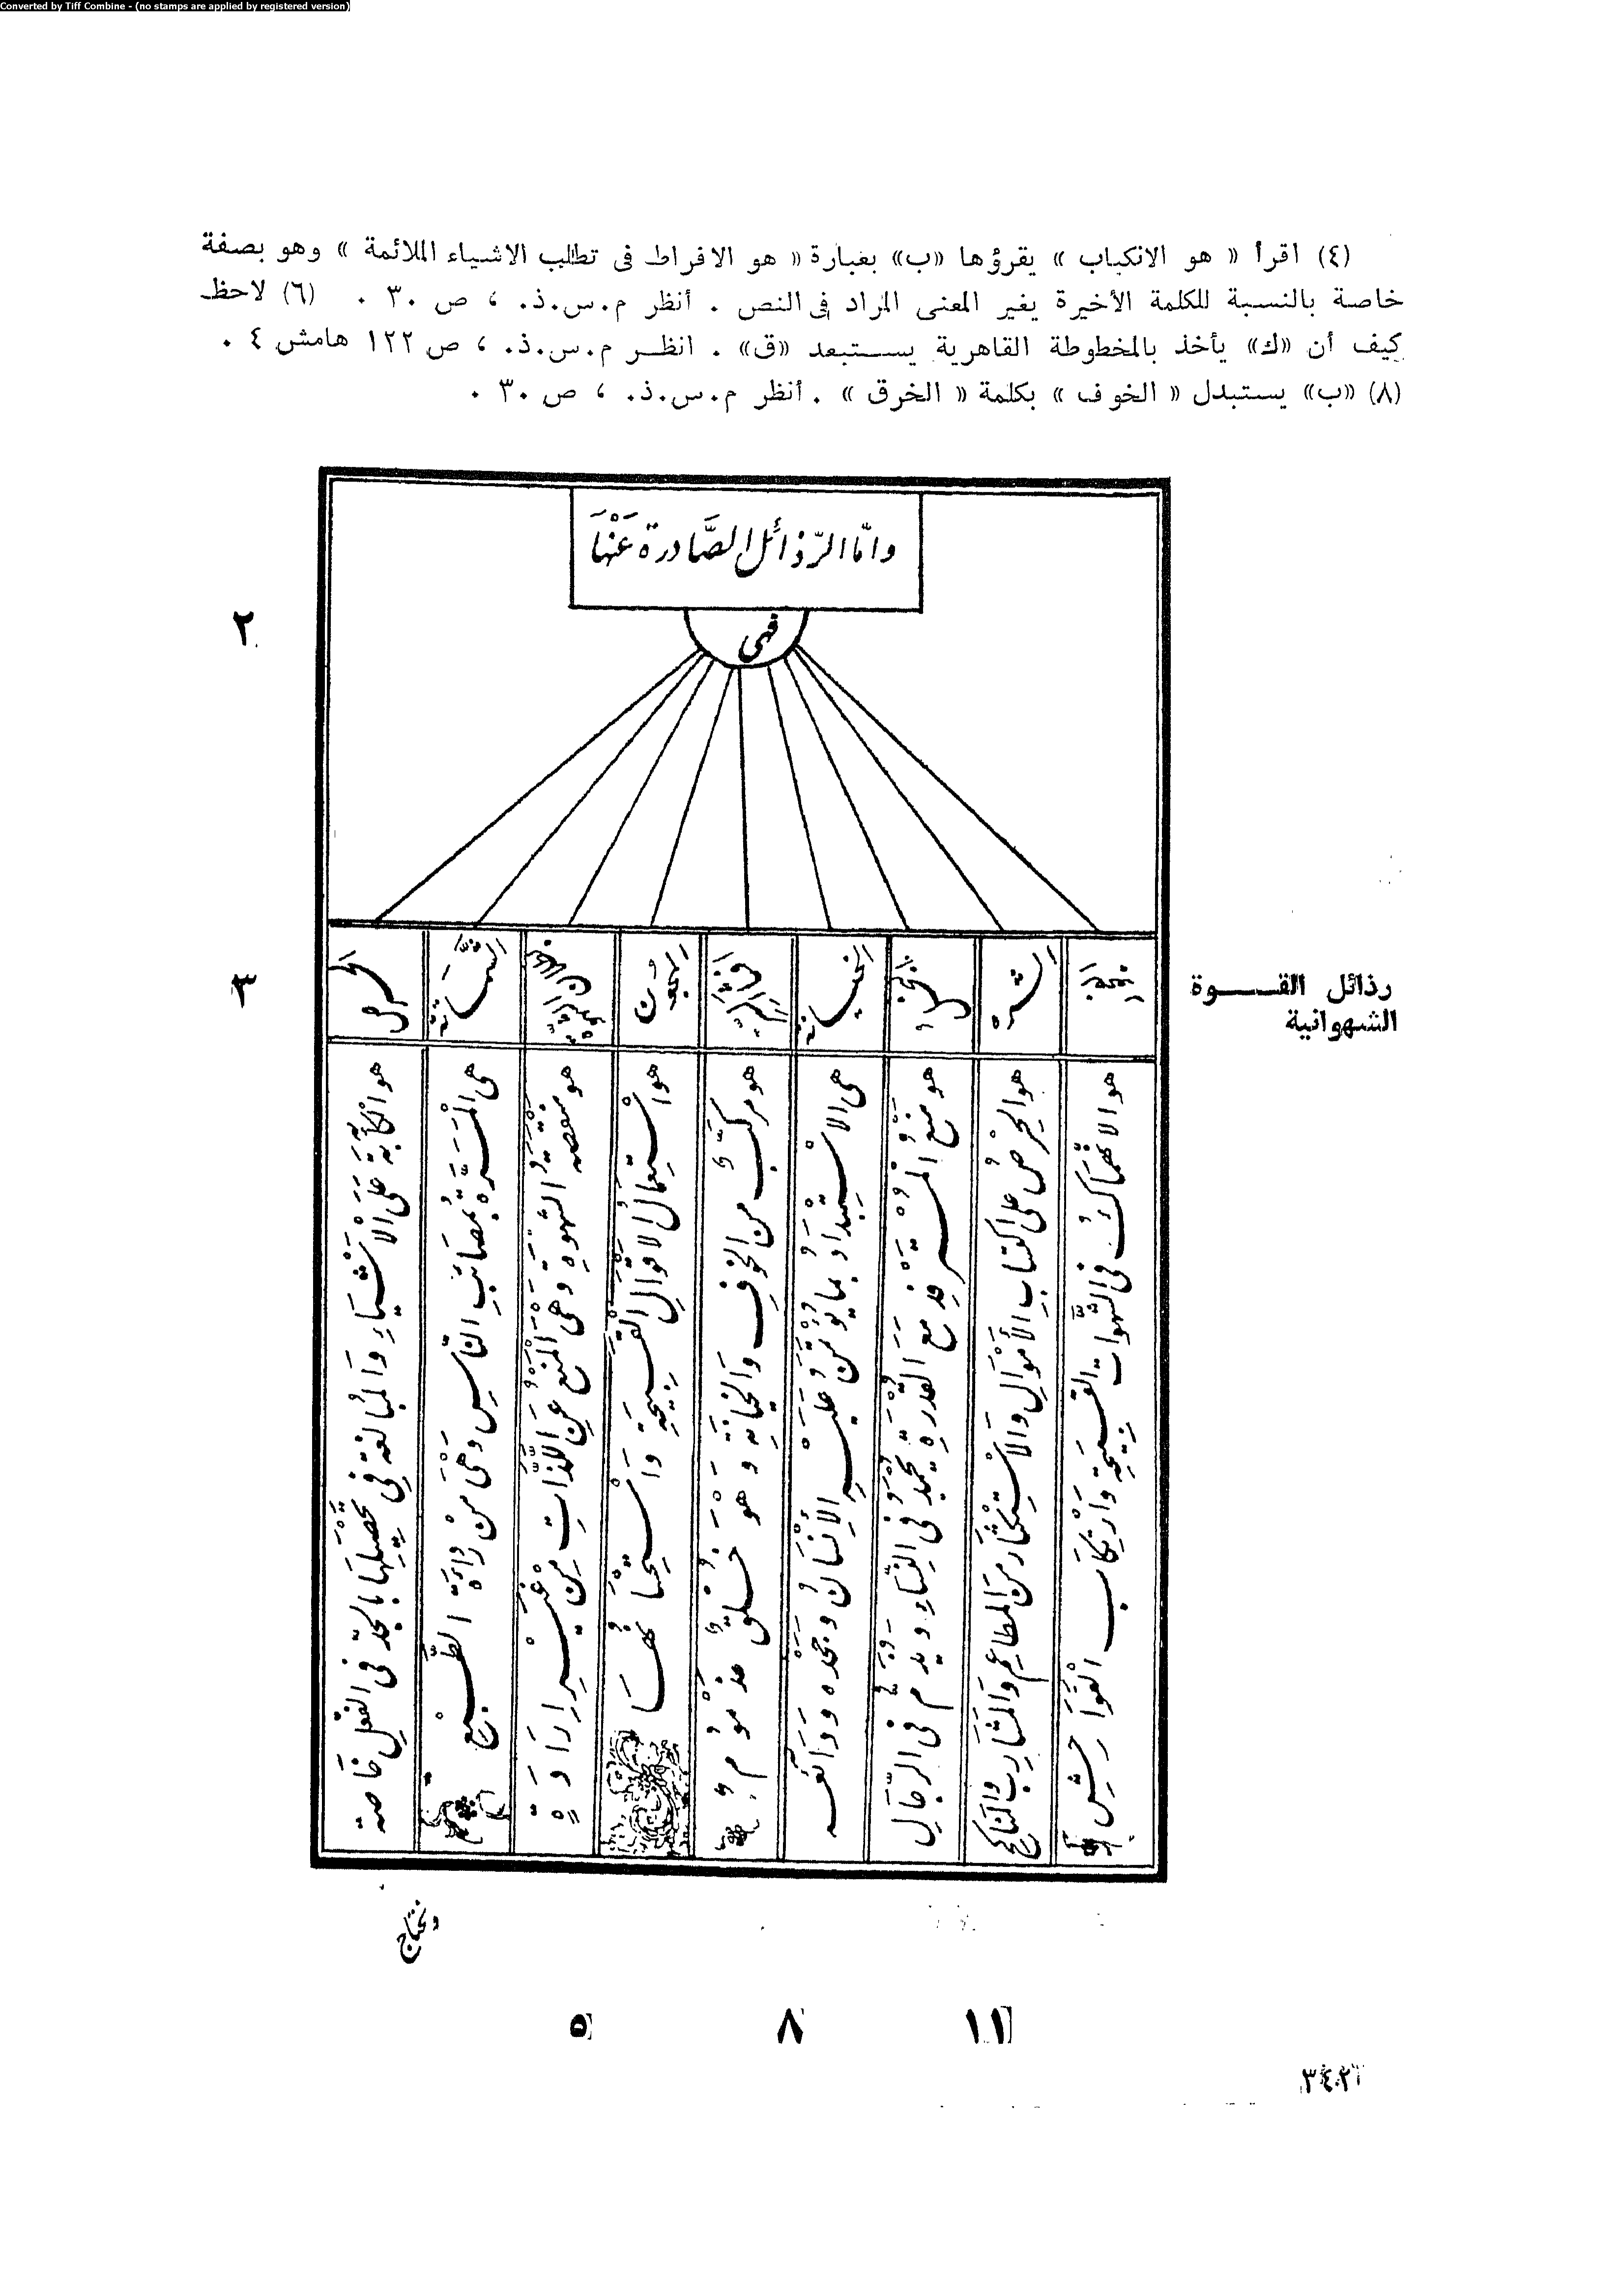 Converted by Tiff Combine - (no stamps are applied by registered version)
(٤) اقرأ « هو الانكباب » يقرؤها «ب» بعبارة « هو الافراط فى تطلب الاشياء الملائمة » وهو بصفة
خاصة بالنسبة للكلمة الأخيرة يغير المعنى المراد فى النص . أنظر م.س.ذ. ، ص ٣٠ . (٦) لاحظ
كيف أن «ك» يأخذ بالمخطوطة القاهرية يستبعد «ق» . انظر م.س.ذ. ، ص ١٢٢ هامش ٤ .
(٨) «ب» يستبدل « الخوف » بكلمة « الخرق » . أنظر م.س.ذ. ، ص ٣٠ .
وَامَّا الرَّذَائلُ الصَّادرة عَنْهَا
فهى
٢
٣
رذائل القوة
الشهوانية
الشره
البخل
الخيانة
الشماتة
الحرص
هو الانهماكُ فى الشَّهوات القبيحة وَارْتكاب الْفَوَاحِشِ
هو الحِرْصُ على اكتسابِ الأَمْوَالِ وَالاسْتِكْثَار مَن المطاعِم وَالمشَارِب وَالمناكح
هو منع المُسْتَرْفِدِ مَعَ القُدْرةِ يُحْمَدُ فى النِّسَاءِ ويذم فى الرِّجَالِ
هى الاسْتِبْدَادُ بما يُؤْتَمَنُ عَلَيْهِ الإِنْسَانُ وجحده ودائعه
هو مركَّبٌ من الخوْفِ وَالخِيَانَةِ وَهوَ خُلْقٌ مَذْمُومٌ
هو اسْتِعمالُ الاقْوَالِ القبِيحَةِ وَاسْتِحْسَانُهَا
هو منقصة الشهوةِ وهى المنعُ عَن اللَّذَّاتِ مِنْ غَيْرِ ارَادَةٍ
هى المَسَرَّة بمُصَائبِ النَّاسِ وهَى مَنْ رَدَاءَة الطَّبْعِ
هو الكَآبَة عَلَى الاشْيَاءِ وَالمُبَالغة فِى تَحْصِيلهَا بالجدّ فى الفعْلِ خاصة
وتحتاج
٥ ٨ ١١